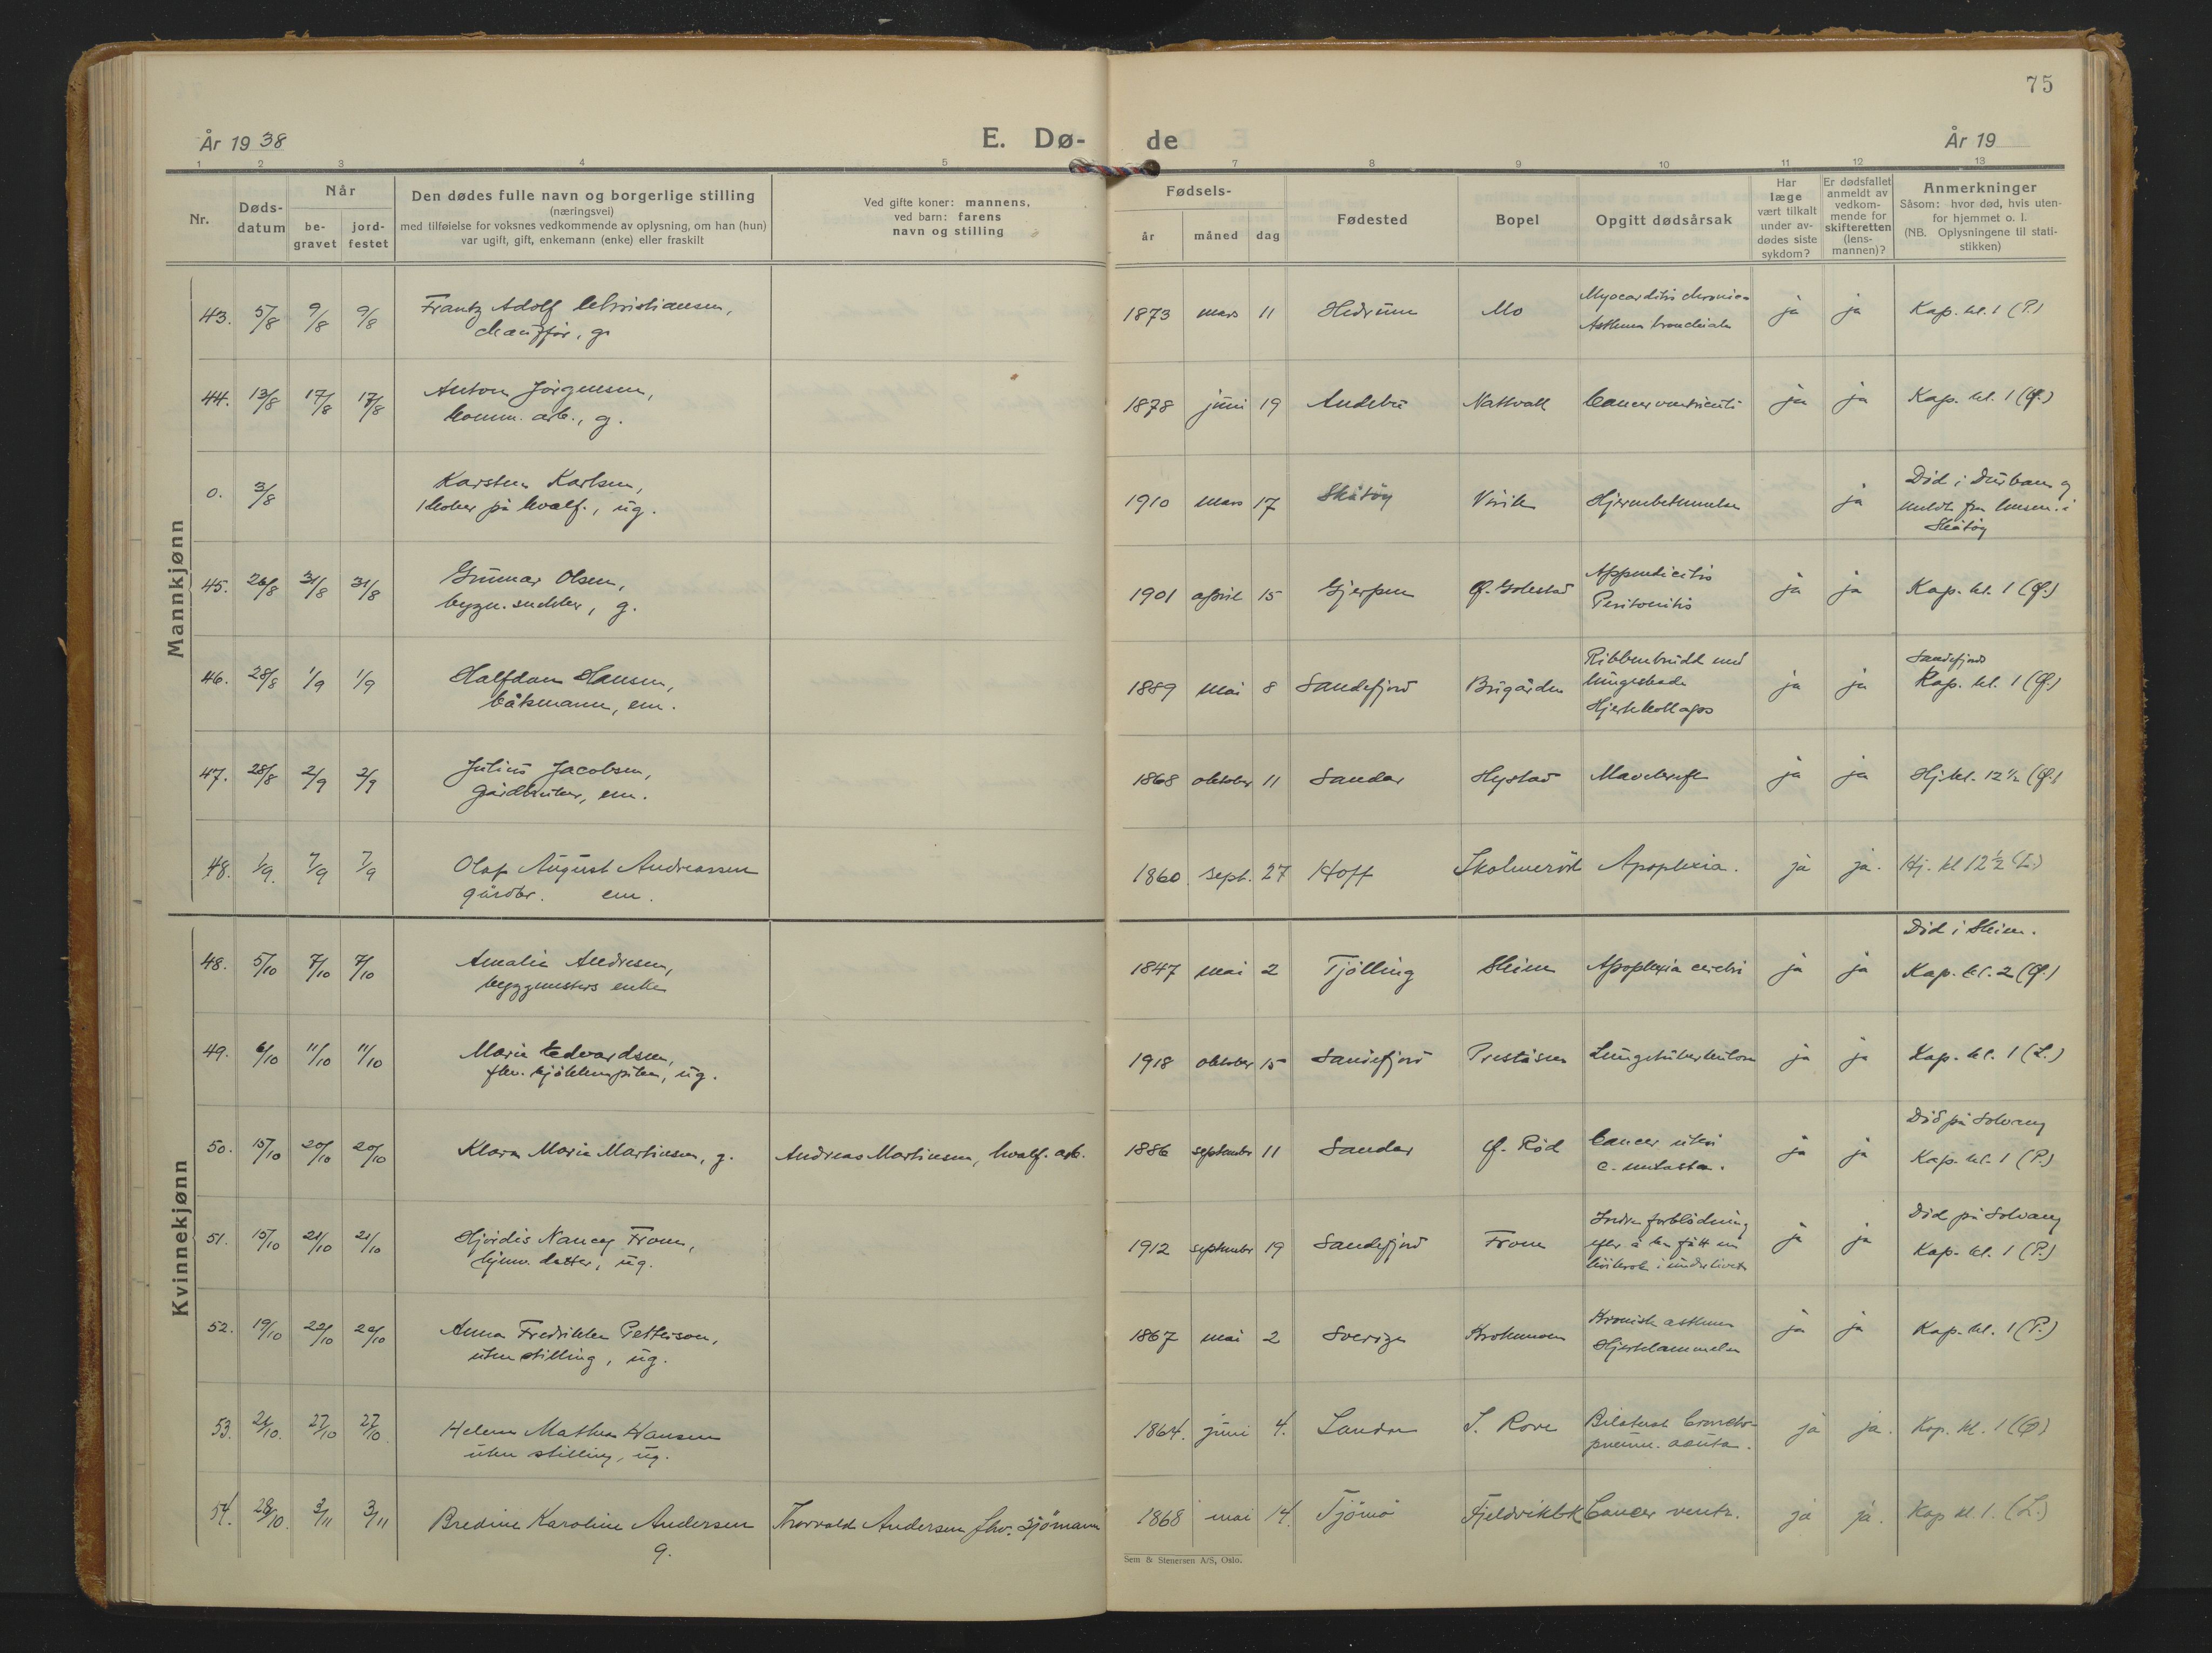 75
År 1938
E. Dø-
de
År 19
1 2 3 4 5 7 8 9 10 11 12 13
Nr.
Døds-
datum
Når
be-
gravet
jord-
festet
Den dødes fulle navn og borgerlige stilling
(næringsvei)
med tilføielse for voksnes vedkommende av oplysning, om han (hun)
var ugift, gift, enkemann (enke) eller fraskilt
Ved gifte koner: mannens,
ved barn: farens
navn og stilling
Fødsels-
år måned dag
Fødested
Bopel
Opgitt dødsårsak
Har
læge
vært tilkalt
under av-
dødes siste
sykdom?
Er dødsfallet
anmeldt av
vedkom-
mende for
skifteretten
(lens-
mannen)?
Anmerkninger
Såsom: hvor død, hvis uten-
for hjemmet o. l.
(NB. Oplysningene til stati-
stikken)
Mannkjønn
43. 5/8 9/8 9/8 Frantz Adolf Christiansen,
chauffør, g. 1873 mars 11 Hedrum Mo Myocarditis chronica
Asthma bronchiale ja ja Kap. kl. 1 (P.)
44. 13/8 17/8 17/8 Anton Jørgensen,
komm. arb., g. 1878 juni 19 Andebu Nattvall Cancer ventriculi ja ja Kap. kl. 1 (Ø.)
0. 3/8 Karsten Karlsen,
koker på hvalf., ug. 1910 mars 17 Skåtøy Virik Hjernebetennelse ja Død i Durban og
meldt fra lensm. i
Skåtøy
45. 26/8 31/8 31/8 Gunnar Olsen,
bygn. snekker, g. 1901 april 15 Gjerpen Ø. Gokstad Appendicitis
Peritonitis ja ja Kap. kl. 1 (Ø.)
46. 28/8 1/9 1/9 Halfdan Hansen,
båtsmann, em. 1889 mai 8 Sandefjord Bugården Ribbenbrudd med
lungeskade
Hjertekollaps ja ja Sandefjord
Kap. kl. 1 (Ø.)
47. 28/8 2/9 2/9 Julius Jacobsen,
gårdbruker, em. 1868 oktober 11 Sandar Hystad Mavekreft ja ja Hj. kl. 12 1/2 (Ø.)
48. 1/9. 7/9 7/9 Olaf August Andreassen
gårdbr. em. 1860. sept. 27 Hoff Skolmerød Apoplexia. ja ja. Hj. kl 12 1/2 (L.)
Kvinnekjønn
48. 5/10 7/10 7/10 Amalie Andresen,
byggmesters enke 1847 mai 2 Tjølling Skien Apoplexia cerebri ja ja Død i Skien.
Kap. kl. 2 (Ø.)
49. 6/10 11/10 11/10 Marie Edvardsen,
fhv. kjøkkenpike, ug. 1918 oktober 15 Sandefjord Preståsen Lungetuberkulose ja ja Kap. kl. 1 (L.)
50. 15/10 20/10 20/10 Klara Marie Martinsen, g. Andreas Martinsen, hvalf. arb. 1886 september 11 Sandar Ø. Rød Cancer uteri
c. metastas. ja ja Død på Solvang
Kap. kl. 1 (P.)
51. 15/10 21/10 21/10 Hjørdis Nancy From,
hjemv. datter, ug. 1912 september 19 Sandefjord From Indre forblødning
efter å ha fått en
i underlivet ja ja Død på Solvang
Kap. kl. 1 (P.)
52. 19/10 22/10 22/10 Anna Fredrikke Petterson,
uten stilling, ug. 1867 mai 2 Sverige Krokemoen Kronisk asthma
Hjertelammelse ja ja Kap. kl. 1 (P.)
53. 21/10. 27/10 27/10 Helene Mathea Hansen
uten stilling, ug. 1864. juni 4. Sandar S. Rove Bilateral broncho-
pneum. acuta. ja ja. Kap. kl. 1 (Ø)
54. 28/10. 3/11 3/11 Bredine Karoline Andersen
g. Thorvald Andersen fhv. Sjømann 1868 mai 14. Tjømø Fjeldvikbk Cancer ventr. ja ja. Kap kl. 1. (L.)
Sem & Stenersen A/S, Oslo.